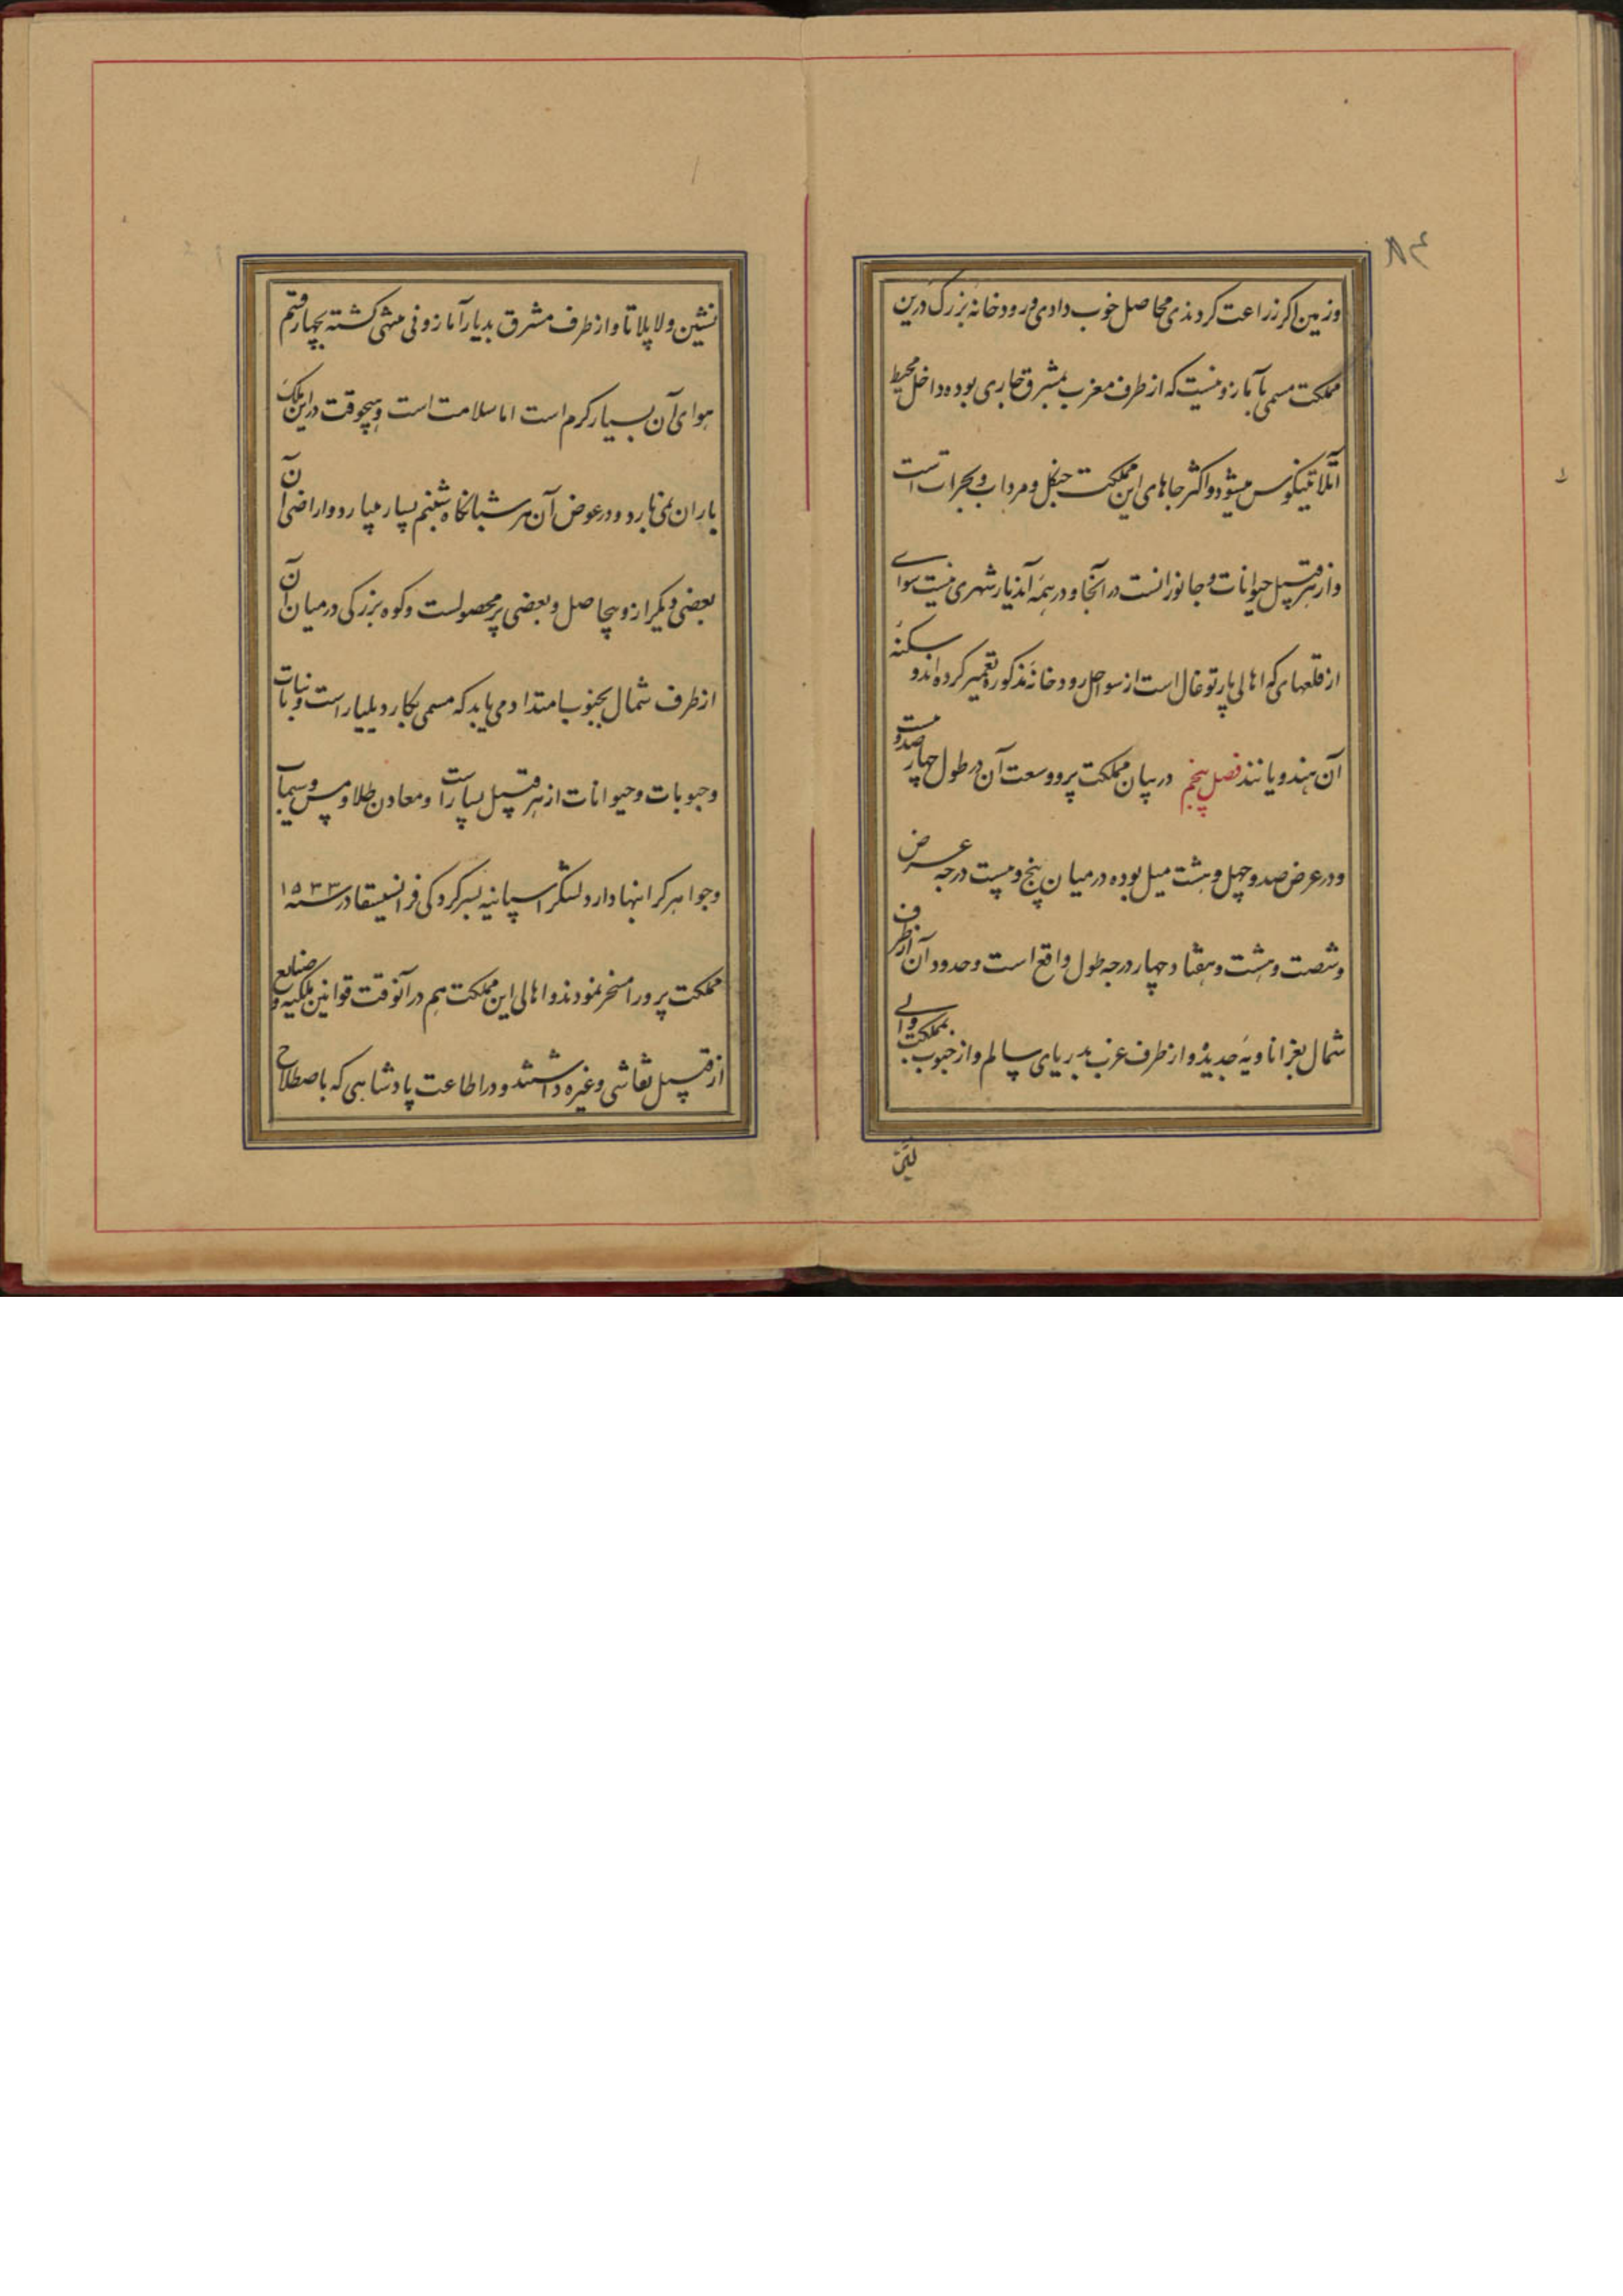 وزمین اکر زراعت کردندی محاصل خوب دادی ورودخانه بزرک درین
مملکت مسمی بآمازونیست که از طرف مغرب بمشرق جاری بوده داخل محیط
آتلانتیکوس میشود واکثر جاهای این مملکت جنکل ومرداب وبحرات است
واز هر قبیل حیوانات وجانورانست در آنجا ودر همه آندیار شهری نیست سوای
از قلعهای که اهالی پارتوغال است از سواحل رودخانه مذکوره تعمیر کرده اند و سکنهٔ
آن هندویانند فصل پنجم در بیان مملکت پرو وسعت آن در طول چهار صد و بیست
ودر عرض صد وچهل وهشت میل بوده در میان پنج وبیست درجه عرض
وشصت وهشت وهفتاد چهار درجه طول واقع است وحدود آن از طرف
شمال بغراناویهٔ جدیده واز طرف غرب بدریای سالم واز جنوب بمملکت والی
نشین ولاپلاتا واز طرف مشرق بدیار آمازونی منتهی کشته بچهار قسم
هوای آن بسیار کرم است اما سلامت است وهیچوقت در این ملک
باران نمی بارد ودر عوض آن هر شبانکاه شبنم بسیار میبارد واراضی آن
بعضی دیکر از وبیحاصل وبعضی پر محصولست وکوه بزرکی در میان آن
از طرف شمال بجنوب امتداد می یابد که مسمی بکاردیلیار است ونباتات
وحبوبات وحیوانات از هر قبیل بسیار است ومعادن طلا ومس وسیماب
وجواهر کرانبها دارد لشکر اسپانیه بسرکردکی فرانسیسقا در سنه ۱۵۳۳
مملکت پرو را مسخر نمودند واهالی این مملکت هم در آنوقت قوانین ملکیه و صنایع
از قبیل نقاشی وغیره داشتند ودر اطاعت پادشاهی که باصطلاح